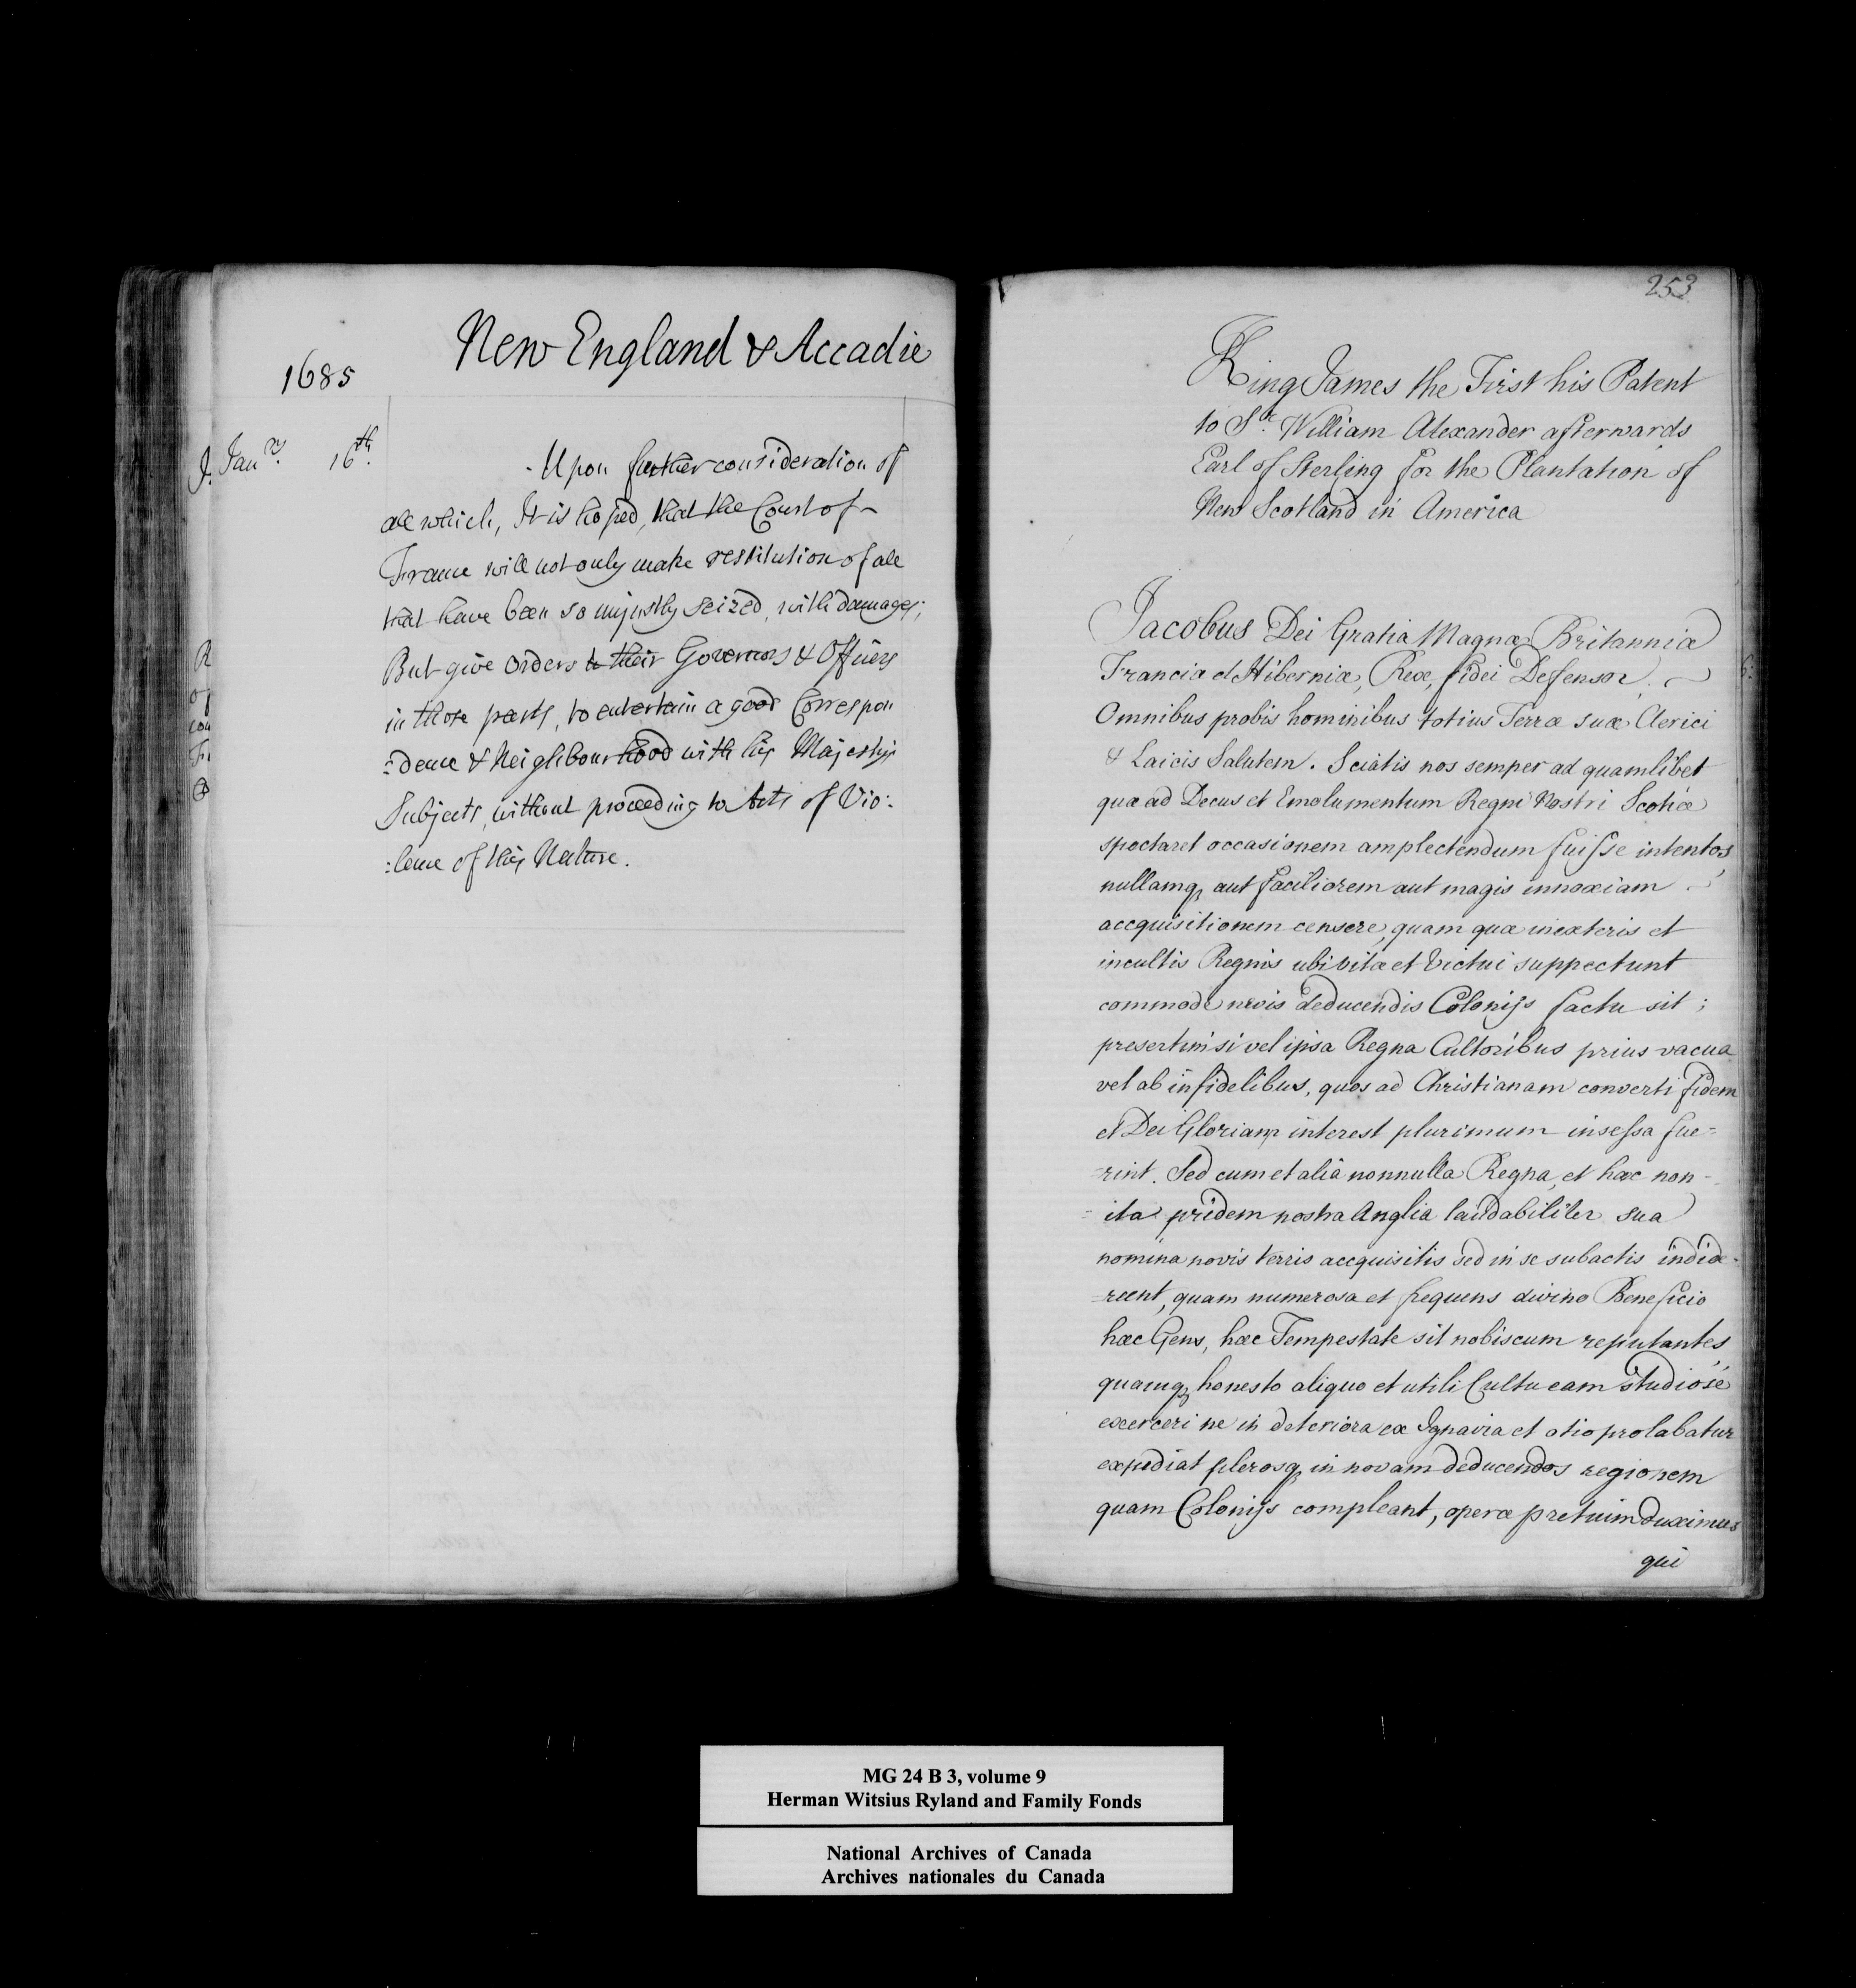 New England & Accadie
1685
J. Jan.ry 16th.
- Upon further consideration of
all which, It is hoped, that the Court of -
France will not only make restitution of all
that have been so unjustly seized, with damages;
But give orders to their Governors & Officers
in those parts, to entertain a good Correspon
:dence & Neighbourhood with his Majestys
Subjects, without proceeding to Acts of Vio:
:lence of this Nature.
R
of
con
Fr
253
King James the First his Patent
to Sr. William Alexander afterwards
Earl of Sterling for the Plantation of
New Scotland in America
Jacobus Dei Gratia Magnæ Britanniæ
Franciæ et Hiberniæ, Rex, fidei Deffensor.
Omnibus probis hominibus totius Terræ suæ Clerici
& Laicis Salutem. Sciatis nos semper ad quamlibet
quæ ad Decus et Emolumentum Regni Nostri Scotiæ
spectaret occasionem amplectendum fuisse intentos,
nullamq, aut faciliorem aut magis innoxiam
accquisitionem censere, quam quæ inexteris et
incultis Regnis ubi vitæ et Victui suppectunt
commode novis deducendis Colonijs factu sit;
presertim si vel ipsa Regna Cultoribus prius vacua
vel ab infidelibus, quos ad Christianam converti fidem
et Dei Gloriam interest plurimum insessa fue=
=rint. Sed cum et alia nonnulla Regna, et hæc non-
= ita pridem nostra Anglia laudabiliter sua
nomina novis terris accquisitis sed in se subactis indide-
=runt, quam numerosa et frequens divino Beneficio
hæc Gens, hac Tempestate sit nobiscum reputantes,
quamq, honesto aliquo et utili Cultu eam studiosé
exerceri ne in deteriora ex Ignavia et otio prolabatur
expediat plerosq, in novam deducendos regionem
quam Colonijs compleant, operæ pretium duximus
qui
MG 24 B 3, volume 9
Herman Witsius Ryland and Family Fonds
National Archives of Canada
Archives nationales du Canada